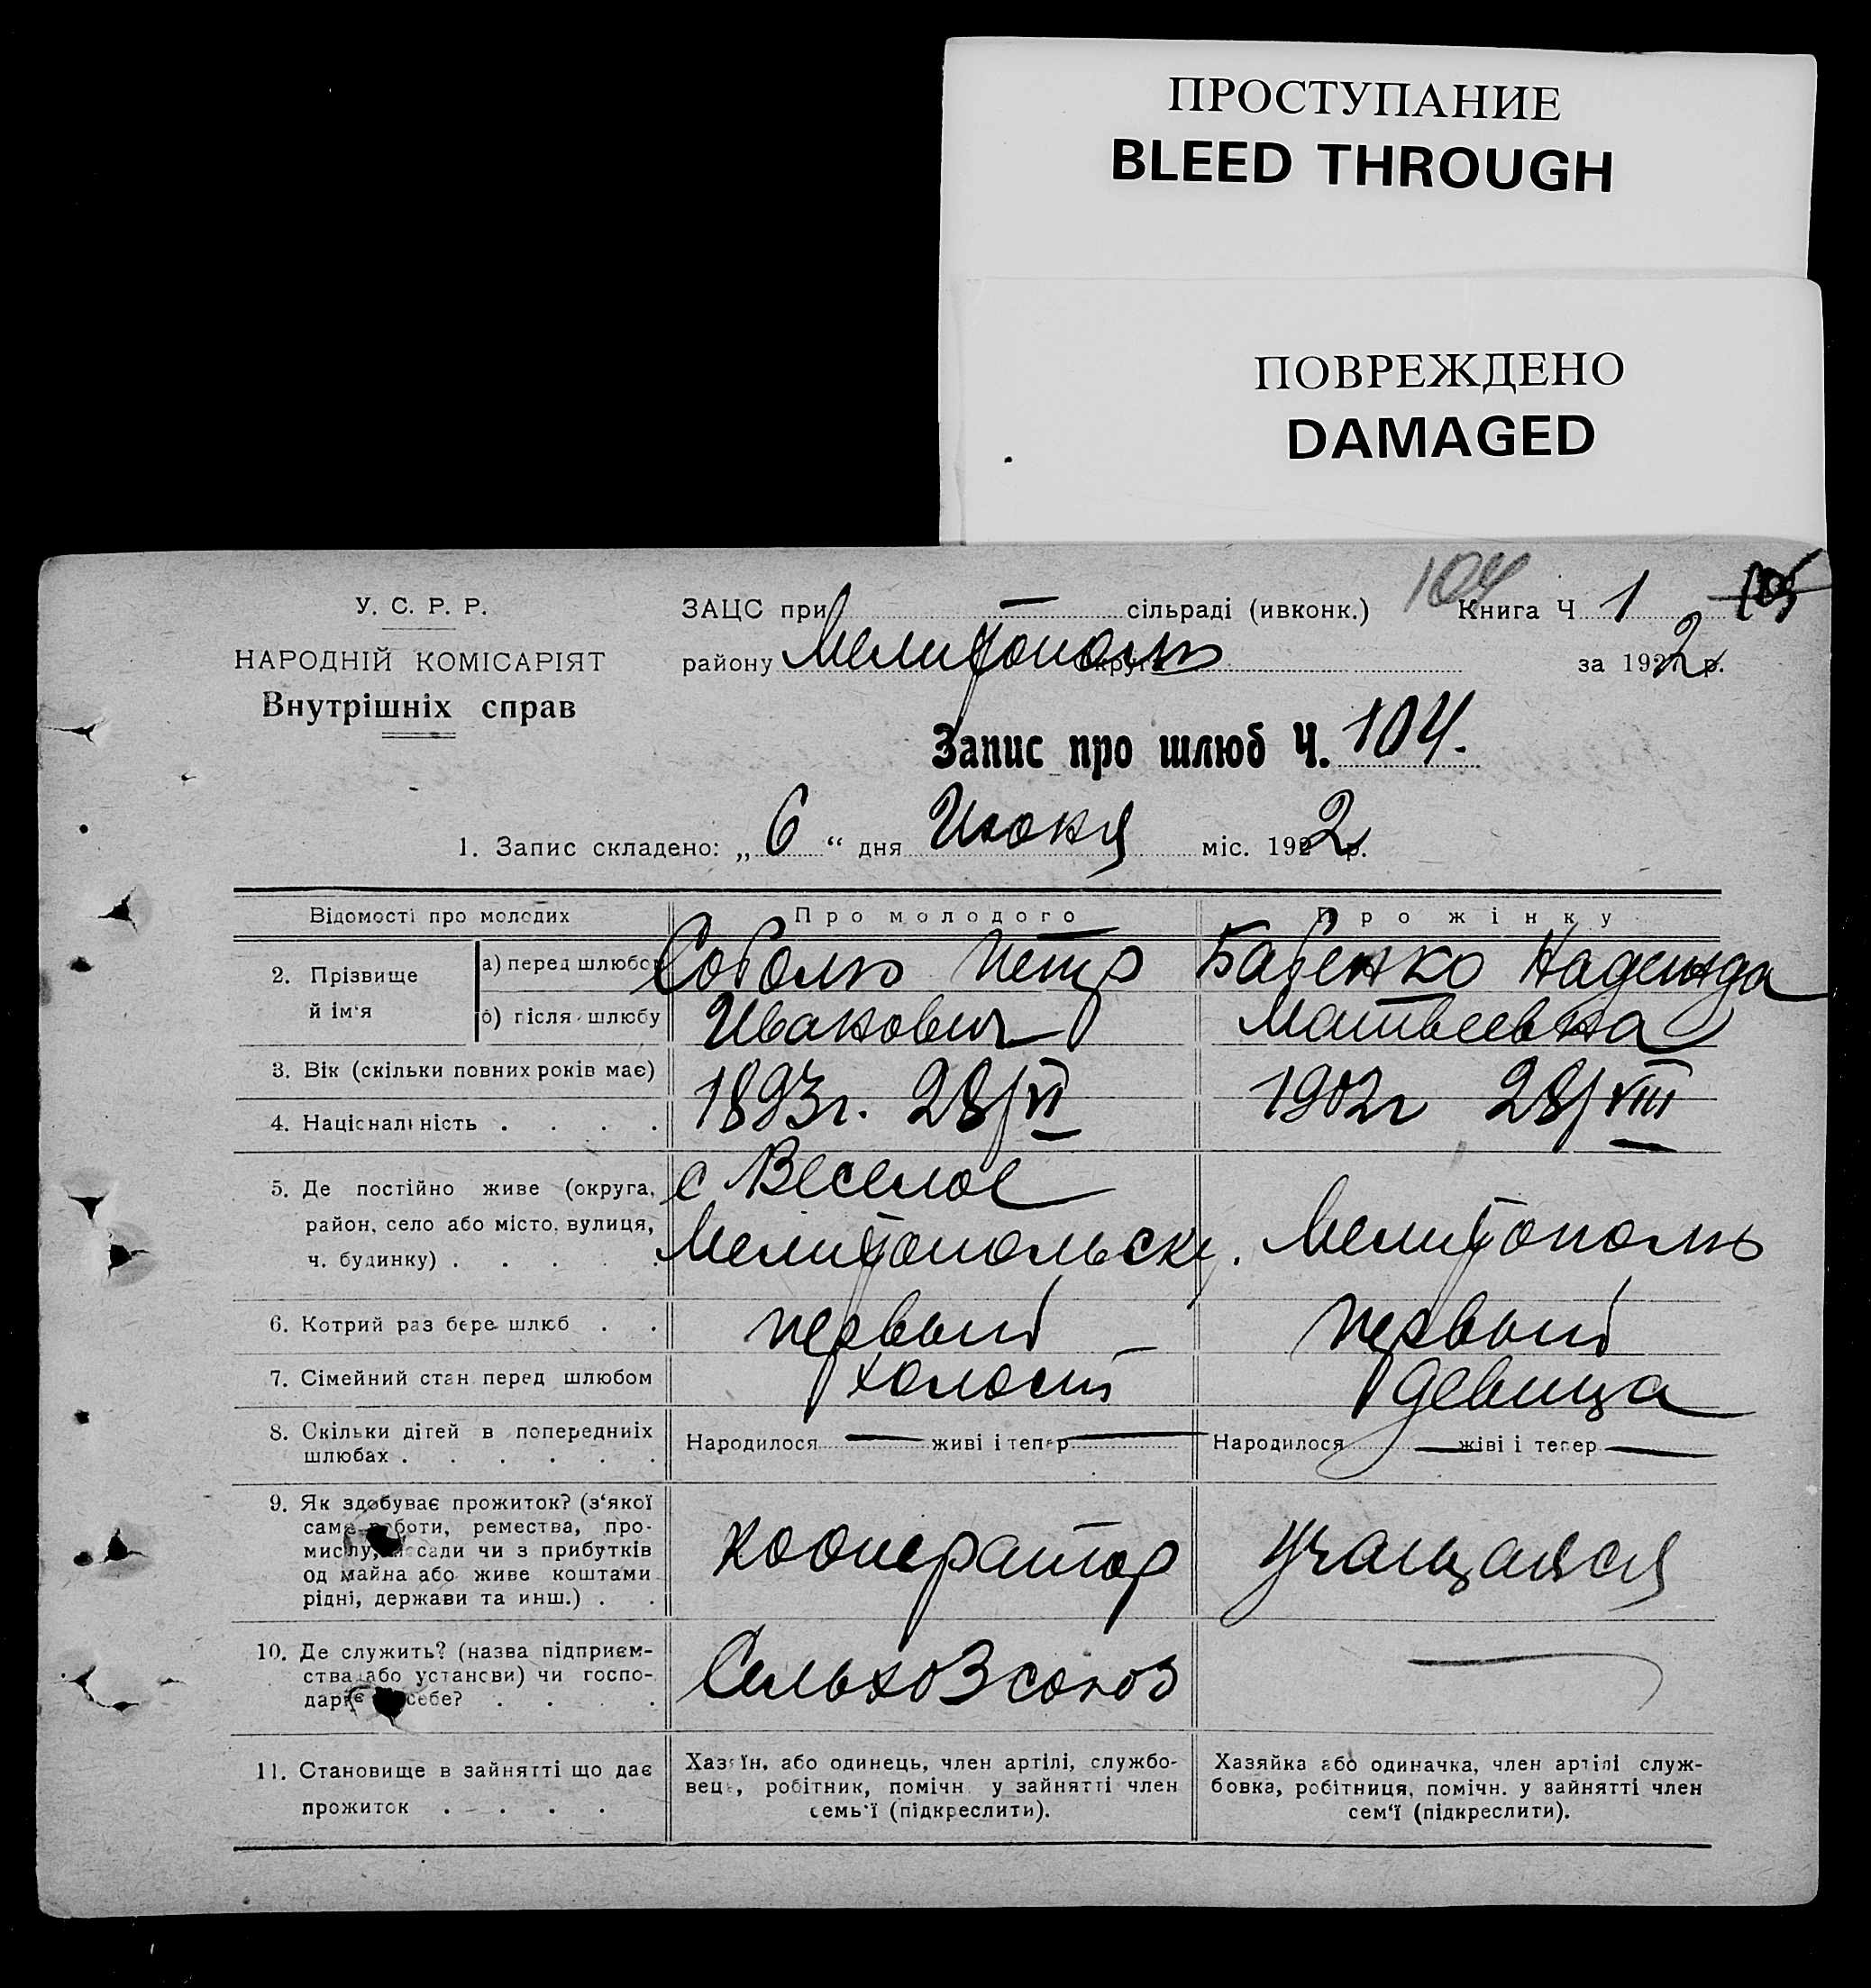 ПРОСТУПАНИЕ
BLEED THROUGH
ПОВРЕЖДЕНО
DAMAGED
У. С. Р. Р.
НАРОДНІЙ КОМІСАРІЯТ
Внутрішніх справ
104
ЗАЦС при — сільраді (ивконк.) Книга Ч 1 105
району Мелитополь округи за 1922 р.
Запис про шлюб Ч. 104.
1. Запис складено: „ 6 “ дня Июня міс. 1922 р.
Відомості про молодих Про молодого Про жінку
2. Прізвище й ім'я
а) перед шлюбом Соболь Петр Бабенко Надежда
б) після шлюбу Иванович Матвеевна
3. Вік (скільки повних років має)
1893г. 28/VI 1902г 28/VIII
4. Національність . . . .
5. Де постійно живе (округа, с Веселое
район, село або місто, вулиця,
ч. будинку) . . . . . Мелитопольск у. Мелитополь
6. Котрий раз бере шлюб . . первый первый
7. Сімейний стан перед шлюбом холост девица
8. Скільки дітей в попередниіх
шлюбах . . . . . . Народилося — живі і тепер — Народилося — жіві і тепер —
9. Як здобуває прожиток? (з'якої
саме роботи, ремества, про-
мислу, посади чи з прибутків
од майна або живе коштами
рідні, держави та инш.) . . кооператор учащаяся
10. Де служить? (назва підприєм-
ства або установи) чи госпо-
дарює себе? . . . . Сельхозсоюз —
11. Становище в зайнятті що дає
прожиток . . . . .
Хазяїн, або одинець, член артілі, службо-
вець, робітник, помічн. у зайнятті член
семь'ї (підкреслити).
Хазяйка або одиначка, член артілі служ-
бовка, робітниця, помічн. у зайнятті член
сем'ї (підкреслити).